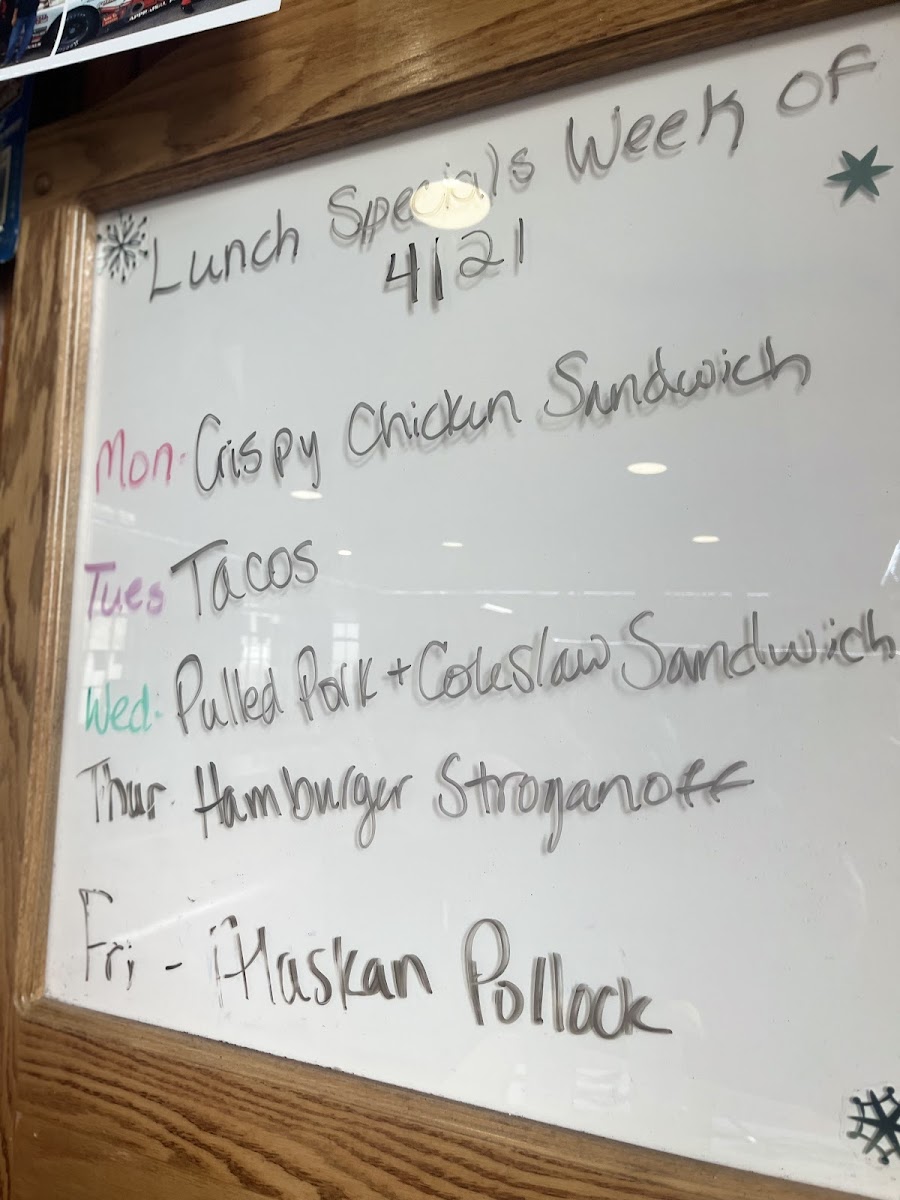 Lunch Specials Week of
4/21
Mon. Crispy Chicken Sandwich
Tues Tacos
Wed. Pulled Pork + Coleslaw Sandwich
Thur. Hamburger Stroganoff
Fri - Alaskan Pollock